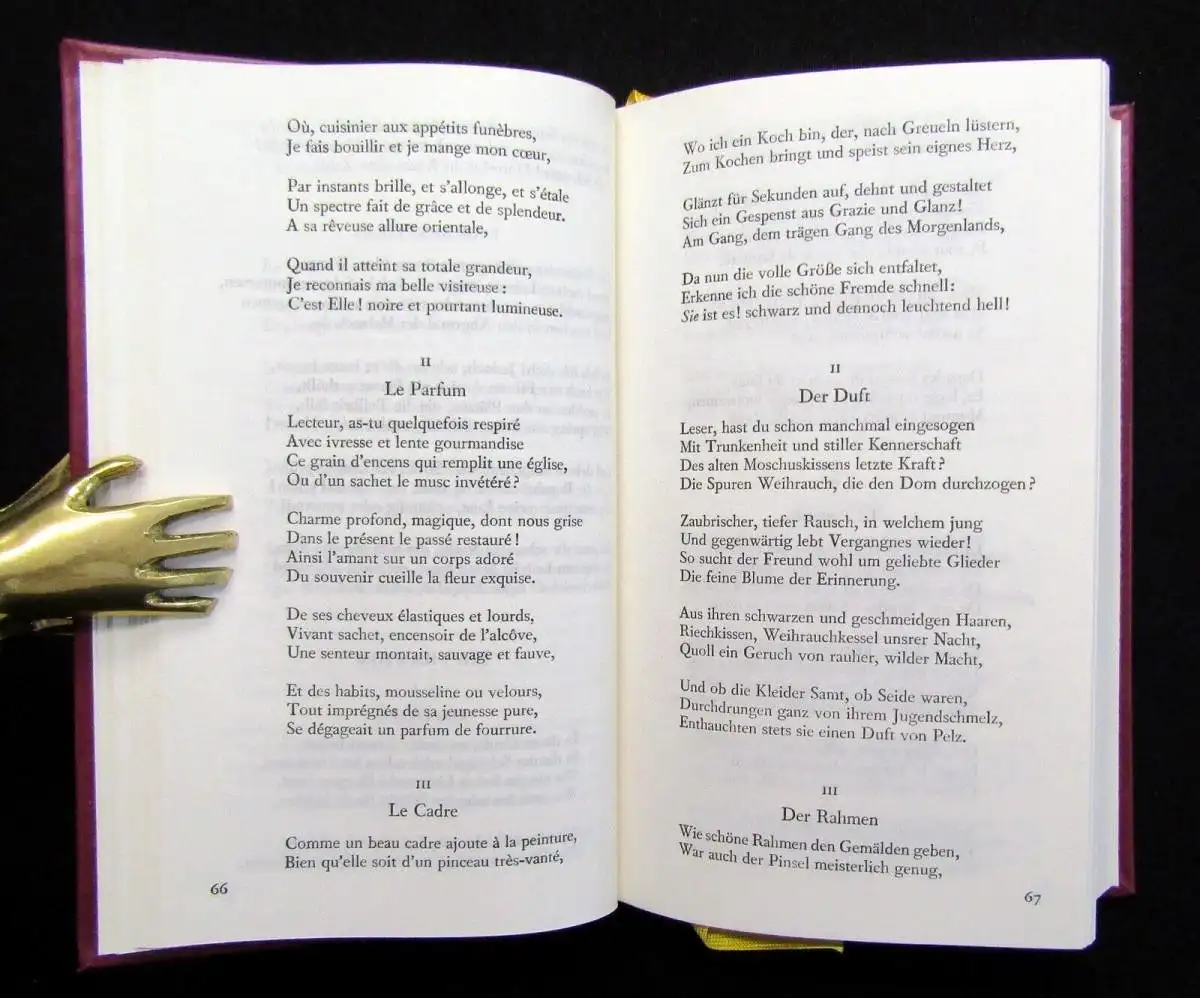 Où, cuisinier aux appétits funèbres,
Je fais bouillir et je mange mon cœur,
Par instants brille, et s'allonge, et s'étale
Un spectre fait de grâce et de splendeur.
A sa rêveuse allure orientale,
Quand il atteint sa totale grandeur,
Je reconnais ma belle visiteuse :
C'est Elle ! noire et pourtant lumineuse.
II
Le Parfum
Lecteur, as-tu quelquefois respiré
Avec ivresse et lente gourmandise
Ce grain d'encens qui remplit une église,
Ou d'un sachet le musc invétéré ?
Charme profond, magique, dont nous grise
Dans le présent le passé restauré !
Ainsi l'amant sur un corps adoré
Du souvenir cueille la fleur exquise.
De ses cheveux élastiques et lourds,
Vivant sachet, encensoir de l'alcôve,
Une senteur montait, sauvage et fauve,
Et des habits, mousseline ou velours,
Tout imprégnés de sa jeunesse pure,
Se dégageait un parfum de fourrure.
III
Le Cadre
Comme un beau cadre ajoute à la peinture,
Bien qu'elle soit d'un pinceau très-vanté,
66
Wo ich ein Koch bin, der, nach Greueln lüstern,
Zum Kochen bringt und speist sein eignes Herz,
Glänzt für Sekunden auf, dehnt und gestaltet
Sich ein Gespenst aus Grazie und Glanz!
Am Gang, dem trägen Gang des Morgenlands,
Da nun die volle Größe sich entfaltet,
Erkenne ich die schöne Fremde schnell:
Sie ist es! schwarz und dennoch leuchtend hell!
II
Der Duft
Leser, hast du schon manchmal eingesogen
Mit Trunkenheit und stiller Kennerschaft
Des alten Moschuskissens letzte Kraft?
Die Spuren Weihrauch, die den Dom durchzogen?
Zaubrischer, tiefer Rausch, in welchem jung
Und gegenwärtig lebt Vergangnes wieder!
So sucht der Freund wohl um geliebte Glieder
Die feine Blume der Erinnerung.
Aus ihren schwarzen und geschmeidgen Haaren,
Riechkissen, Weihrauchkessel unsrer Nacht,
Quoll ein Geruch von rauher, wilder Macht,
Und ob die Kleider Samt, ob Seide waren,
Durchdrungen ganz von ihrem Jugendschmelz,
Enthauchten stets sie einen Duft von Pelz.
III
Der Rahmen
Wie schöne Rahmen den Gemälden geben,
War auch der Pinsel meisterlich genug,
67